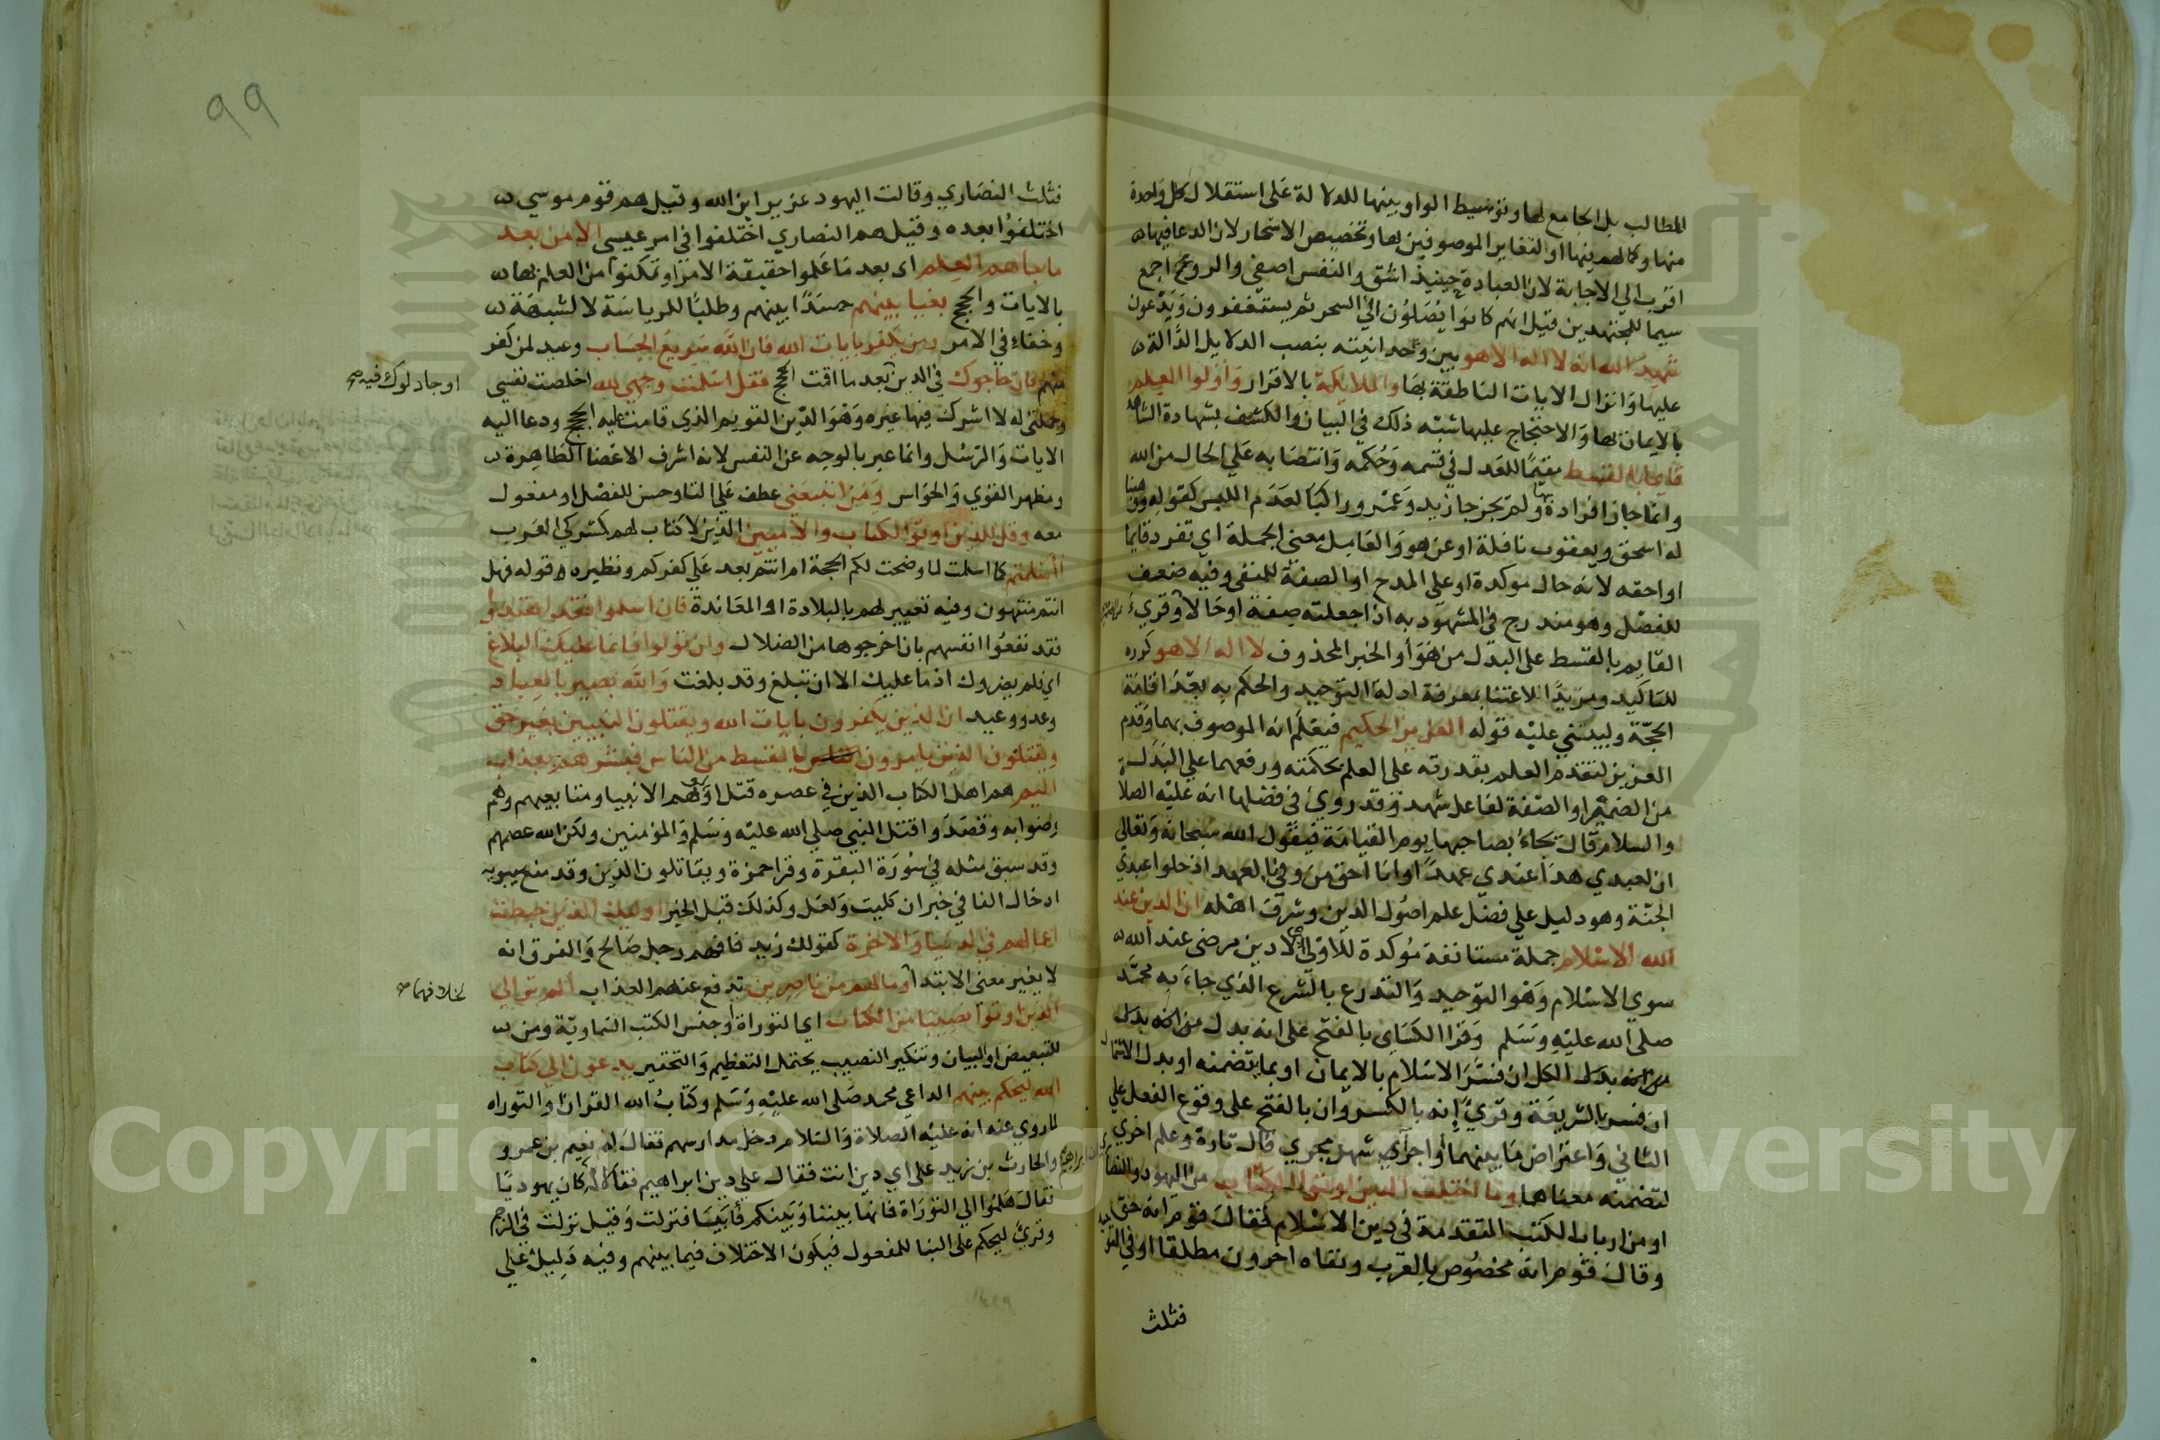 المطالب بل الجامع لها وتوسيط الواو بينها للدلالة على استقلال كل واحدة
منها وكمالهم فيها او لتغاير الموصوفين بها وتخصيص الاسحار لان الدعا فيها
اقرب الي الاجابة لان العبادة حينيذ اشق والنفس اصفي والروع اجمع
سيما للمجتهدين قيل انهم كانوا يصلون الي السحر ثم يستغفرون ويدعون
شهد الله انه لا اله الا هو بين وحدانيته بنصب الدلايل الدالة
عليها وانزال الايات الناطقة بها والملايكة بالاقرار واولوا العلم
بالايمان بها والاحتجاج عليها شبه ذلك في البيان والكشف بشهادة الشاهد
قايما بالقسط مقيما للعدل في قسمه وحكمه وانتصابه علي الحال من الله
وانما جاز افراده بها ولم يجز جا زيد وعمرو راكبا لعدم اللبس كقوله ووهبنا
له اسحق ويعقوب نافلة او عن هو والعامل معني الجملة اي تفرد قايما
او احقه لانه حال موكدة او علي المدح او الصفة للمنفي وفيه ضعف
للفصل وهو مندرج في المشهود به اذا جعلته صفة او حالا وقريء
القايم بالقسط علي البدل من هو او الخبر المحذوف لا اله الا هو كرره
للتاكيد ومزيد الاعتنا بمعرفة ادلة التوحيد والحكم به بعد اقامة
الحجة وليبتني عليه قوله العزيز الحكيم فيعلم انه الموصوف بهما وقدم
العزيز لتقدم العلم بقدرته على العلم بحكمته ورفعهما علي البدل
من الضمير او الصفة لفاعل شهد وقد روي في فضلها انه عليه الصلاة
والسلام قال يجاء بصاحبها يوم القيامة فيقول الله سبحانه وتعالي
ان لعبدي هذا عندي عهدا وانا احق من وفي بالعهد ادخلوا عبدي
الجنة وهو دليل علي فضل علم اصول الدين وشرف اهله ان الدين عند
الله الاسلام جملة مستانفة موكدة للاولي اي لا دين مرضي عند الله
سوي الاسلام وهو التوحيد والتدرع بالشرع الذي جاء به محمد
صلى الله عليه وسلم وقرا الكساي بالفتح علي انه بدل من انه بدل
من انه بدل الكل ان فسر الاسلام بالايمان او بما يتضمنه او بدل الاشتمال
ان فسر بالشريعة وقريء إنه بالكسر وان بالفتح على وقوع الفعل علي
الثاني واعتراض ما بينهما او اجراي شهد مجري قال تارة وعلم اخري
لتضمنه معناها وما اختلف الذين اوتوا الكتاب من اليهود والنصاري
او من ارباب الكتب المتقدمة في دين الاسلام فقال قوم انه حق
وقال قوم انه مخصوص بالعرب ونفاه اخرون مطلقا او في التوحيد
فثلث
٩٩
فثلث النصاري وقالت اليهود عزير ابن الله وقيل هم قوم موسي
اختلفوا بعده وقيل هم النصاري اختلفوا في امر عيسي الا من بعد
ما جاهم العلم اي بعد ما علموا حقيقة الامر او تمكنوا من العلم بها
بالايات والحجج بغيا بينهم حسدا بينهم وطلبا للرياسة لا لشبهة
وخفاء في الامر ومن يكفر بايات الله فان الله سريع الحساب وعيد لمن كفر
منهم فان حاجوك في الدين بعد ما اقت الحجج فقل اسلمت وجهي لله اخلصت نفسي
او جادلوك فيه صح
وجملتي له لا اشرك فيها غيره وهو الدين القويم الذي قامت عليه الحجج ودعا اليه
الايات والرسل وانما عبر بالوجه عن النفس لانه اشرف الاعضا الظاهرة
ومظهر القوي والحواس ومن اتبعني عطف علي التا وحسن للفصل او مفعول
معه وقل للذين اوتوا الكتاب والاميين الذين لا كتاب لهم كمشركي العرب
ااسلمتم كما اسلمت لما وضحت لكم الحجة ام انتم بعد علي كفركم ونظيره وقوله فهل
انتم منتهون وفيه تعيير لهم بالبلادة او المعاندة فان اسلموا فقد اهتدوا
فقد نفعوا انفسهم بان اخرجوها من الضلال وان تولوا فانما عليك البلاغ
اي فلم يضروك اذ ما عليك الا ان تبلغ وقد بلغت والله بصير بالعباد
وعد ووعيد ان الذين يكفرون بايات الله ويقتلون النبيين بغير حق
ويقتلون الذين يامرون بالقسط من الناس فبشرهم بعذاب
اليم هم اهل الكتاب الذين في عصره قتل اولهم الانبيا ومتابعيهم وهم
رضوا به وقصدوا قتل النبي صلي الله عليه وسلم والمؤمنين ولكن الله عصمهم
وقد سبق مثله في سورة البقرة وقرا حمزة ويقاتلون الذين وقد منع سيبويه
ادخال الفا في خبر ان كليت ولعل وكذلك قيل الخبر اوليك الذين حبطت
اعمالهم في الدنيا والاخرة كقولك زيد فافهم رجل صالح والفرق انه
لا يغير معني الابتدا وما لهم من ناصرين تدفع عنهم العذاب الم تر الي
بخلافهما صح
الذين اوتوا نصيبا من الكتاب اي التوراة او جنس الكتب السماوية ومن
للتبعيض او البيان وتنكير النصيب يحتمل التعظيم والتحقير يدعون الي كتاب
الله ليحكم بينهم الداعي محمد صلى الله عليه وسلم وكتاب الله القران او التوراه
لما روي عنه انه عليه الصلاة والسلام دخل مدارسهم فقال له نعيم بن عمرو
والحارث بن زيد علي اي دين انت فقال علي دين ابراهيم فقالا له كان يهوديا
فقال هلموا الي التوراة فانها بيننا وبينكم فابيا فنزلت وقيل نزلت في الرجم
وقريء ليحكم علي البنا للمفعول فيكون الاختلاف فيما بينهم وفيه دليل علي
Copyright © King Saud University